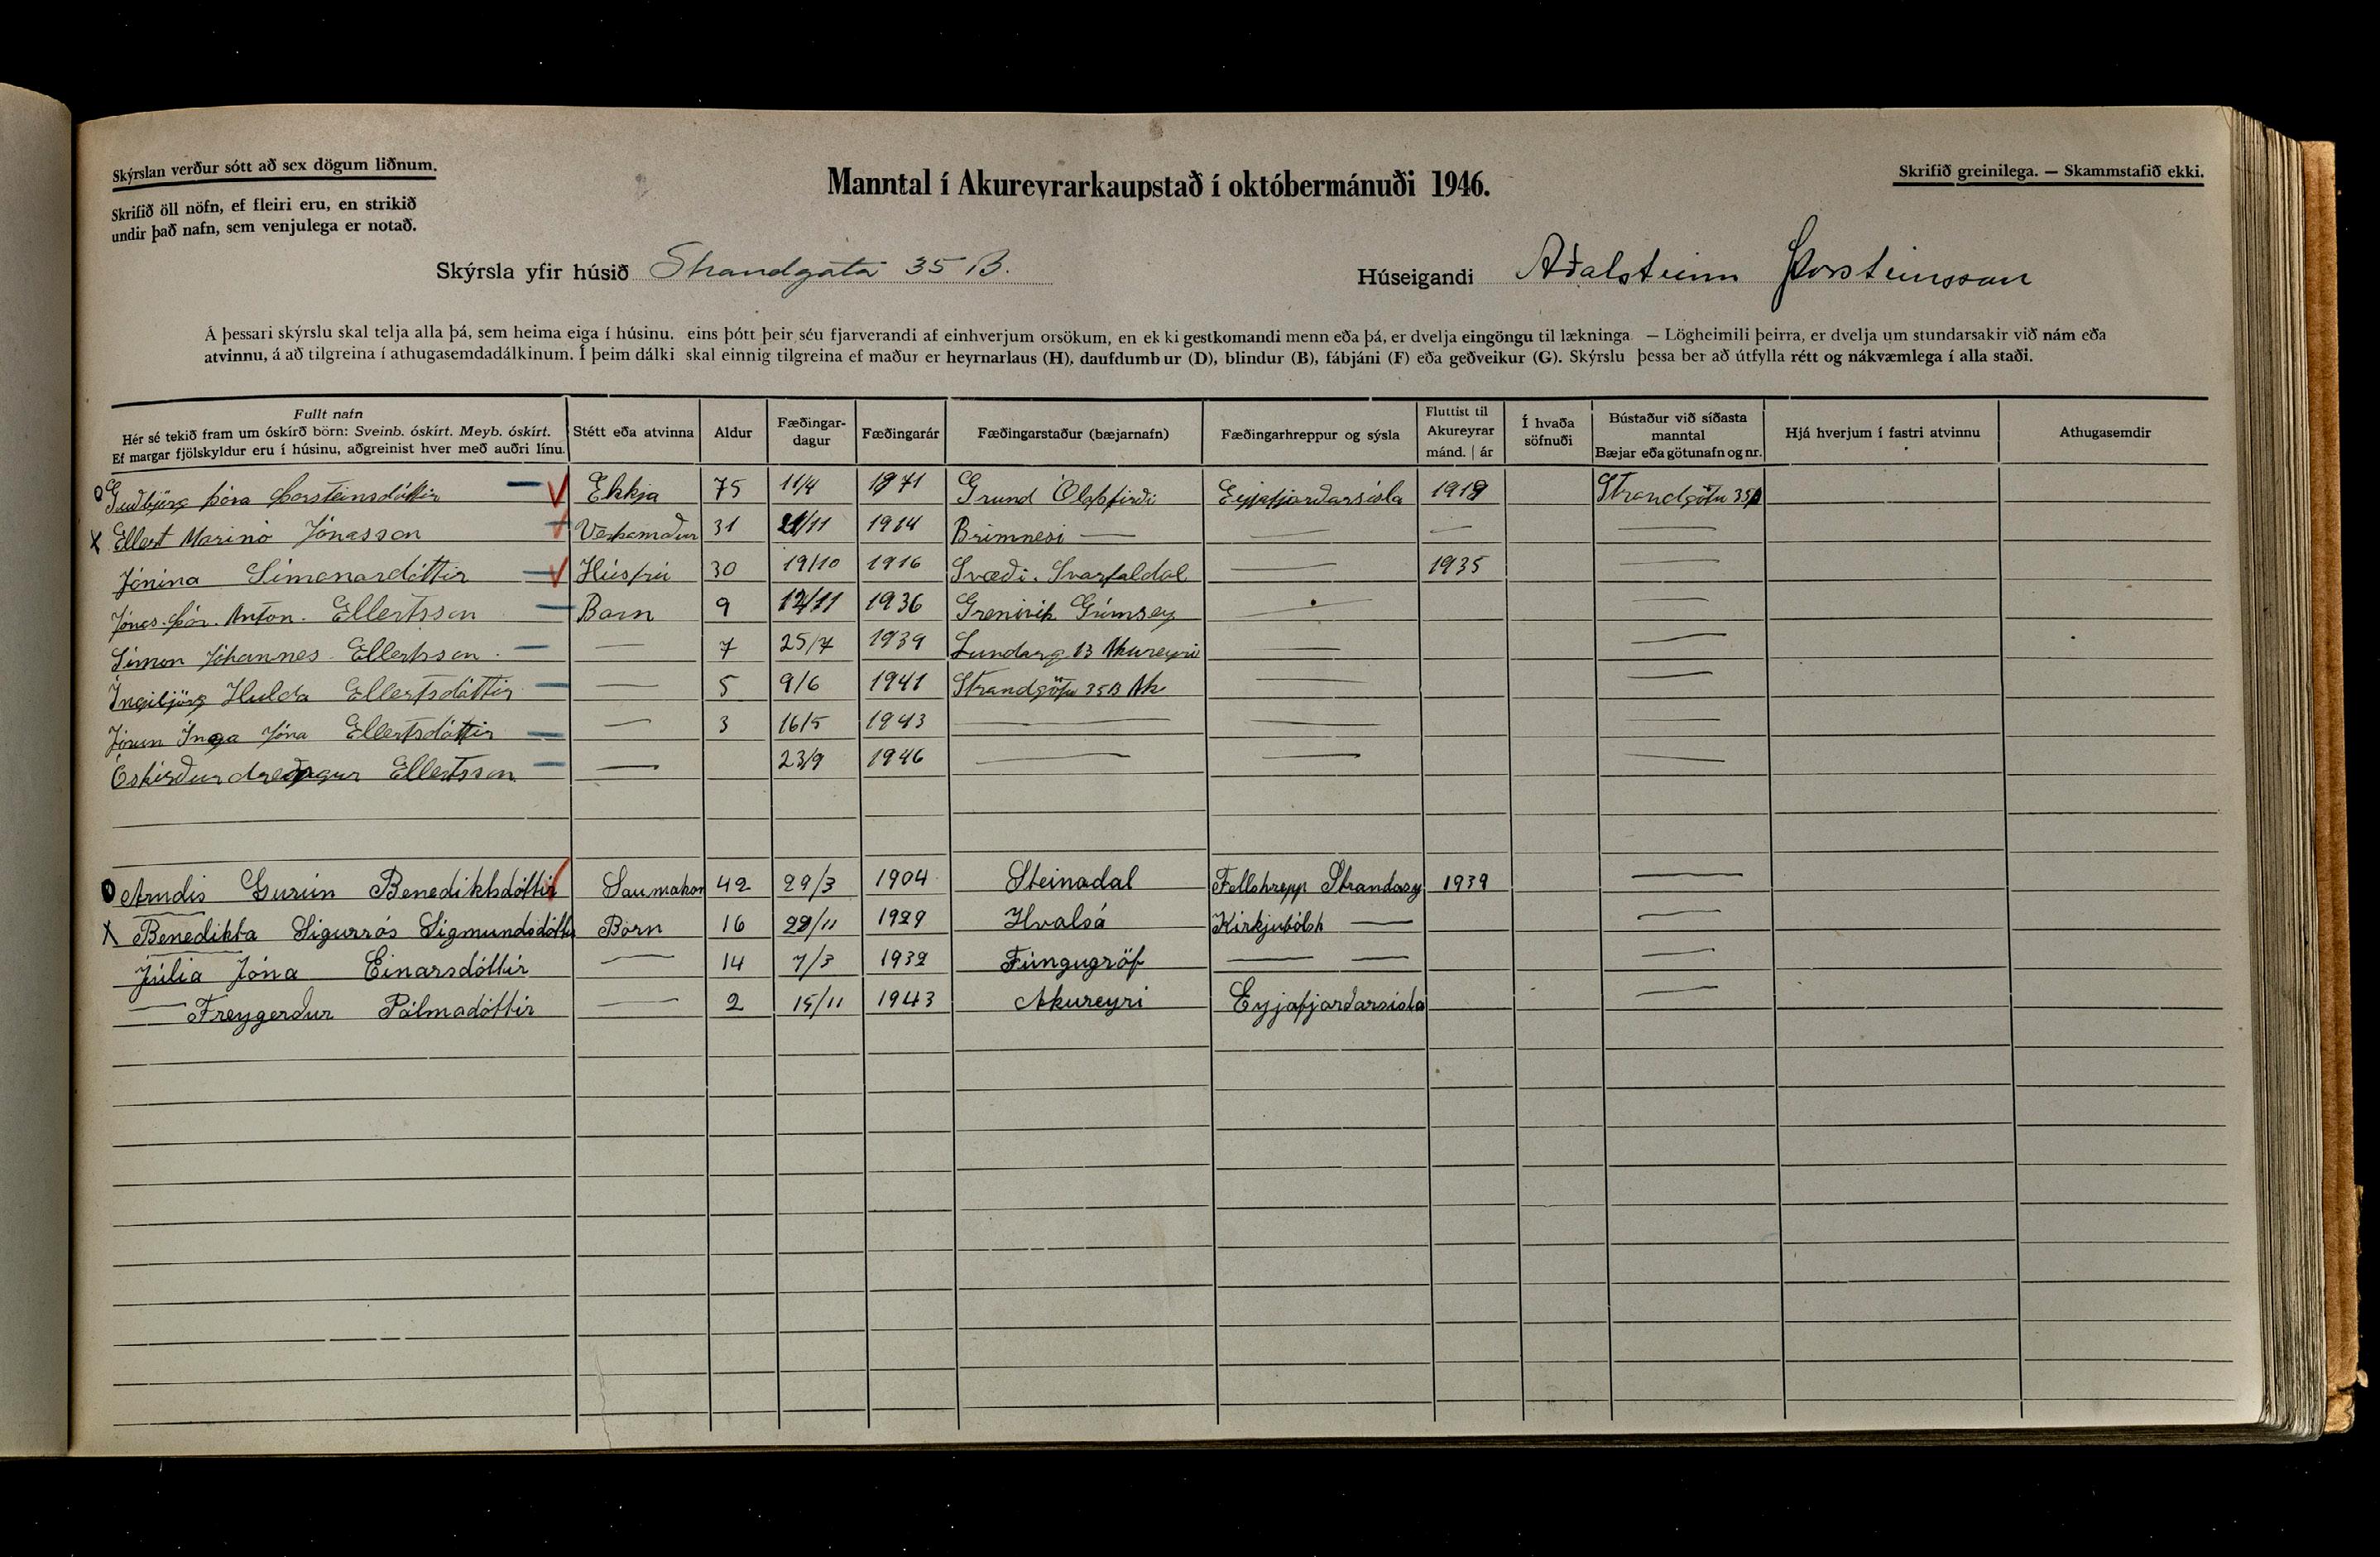 Skýrslan verður sótt að sex dögum liðnum.
Manntal í Akureyrarkaupstað í októbermánuði 1946.
Skrifið greinilega. — Skammstafið ekki.
Skrifið öll nöfn, ef fleiri eru, en strikið
undir það nafn, sem venjulega er notað.
Skýrsla yfir húsið Strandgata 35 B.
Húseigandi Aðalsteinn Þorsteinsson
Á þessari skýrslu skal telja alla þá, sem heima eiga í húsinu. eins þótt þeir séu fjarverandi af einhverjum orsökum, en ekki gestkomandi menn eða þá, er dvelja eingöngu til lækninga. — Lögheimili þeirra, er dvelja um stundarsakir við nám eða
atvinnu, á að tilgreina í athugasemdadálkinum. Í þeim dálki skal einnig tilgreina ef maður er heyrnarlaus (H), daufdumbur (D), blindur (B), fábjáni (F) eða geðveikur (G). Skýrslu þessa ber að útfylla rétt og nákvæmlega í alla staði.
Fullt nafn
Hér sé tekið fram um óskírð börn: Sveinb. óskírt. Meyb. óskírt.
Ef margar fjölskyldur eru í húsinu, aðgreinist hver með auðri línu.
Stétt eða atvinna
Aldur
Fæðingar-
dagur
Fæðingarár
Fæðingarstaður (bæjarnafn)
Fæðingarhreppur og sýsla
Fluttist til
Akureyrar
mánd. | ár
Í hvaða
söfnuði
Bústaður við síðasta
manntal
Bæjar eða götunafn og nr.
Hjá hverjum í fastri atvinnu
Athugasemdir
o Guðbjörg Þóra Þorsteinsdóttir — V Ekkja 75 11/4 1871 Grund Ólafsfirði Eyjafjarðarsísla 1919 Strandgötu 35B
X Ellert Marinó Jónasson Verkamaður 31 21/11 1914 Brimnesi — — — —
Jónina Símonardóttir — V Húsfrú 30 19/10 1916 Svæði. Svarfaldal — 1935 —
Jónas. Þór. Anton. Ellertsson — Barn 9 12/11 1936 Grenivík Grímsey — —
Símon Jóhannes Ellertsson — — 7 25/7 1939 Lundarg 13 Akureyri — —
Ingibjörg Hulda Ellertsdóttir — — 5 9/6 1941 Strandgötu 35B Ak — —
Jórun Inga Jóna Ellertsdóttir — — 3 16/5 1943 — — —
Óskírður drengur Ellertsson — — 23/9 1946 — — —
o Arndís Gurún Benediktsdóttir Saumakon 42 29/3 1904 Steinadal Fellshrepp Strandasy 1939 —
X Benedikta Sigurrós Sigmundsdóttir Börn 16 22/11 1929 Hvalsá Kirkjubólsh — —
Júlía Jóna Einarsdóttir — 14 7/3 1932 Túngugröf — — —
— Freygerður Pálmadóttir — 2 15/11 1943 Akureyri Eyjafjarðarsísla —